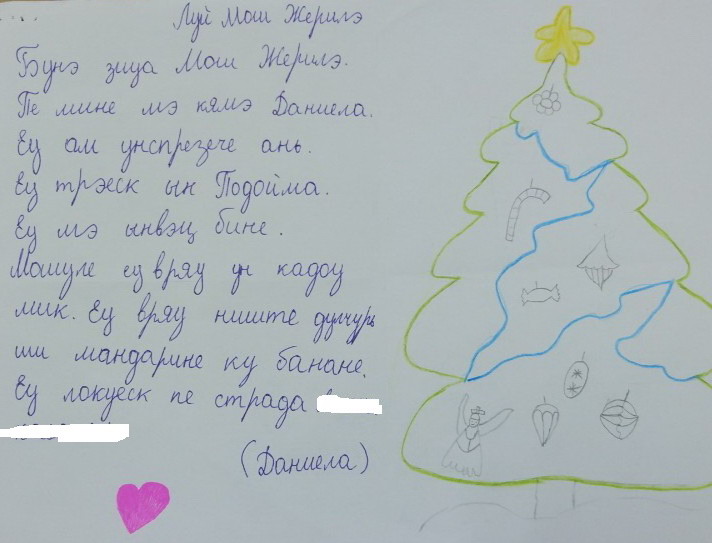 Луй Мош Жерилэ
Бунэ зиуа Мош Жерилэ.
Пе мине мэ кямэ Даниела.
Еу ам унспрезече ань.
Еу трэеск ын Подойма.
Еу мэ ынвэц бине.
Мошуле еу вряу ун кадоу
мик. Еу вряу ниште дулчурь
ши мандарине ку банане.
Еу локуеск пе страда
(Даниела)